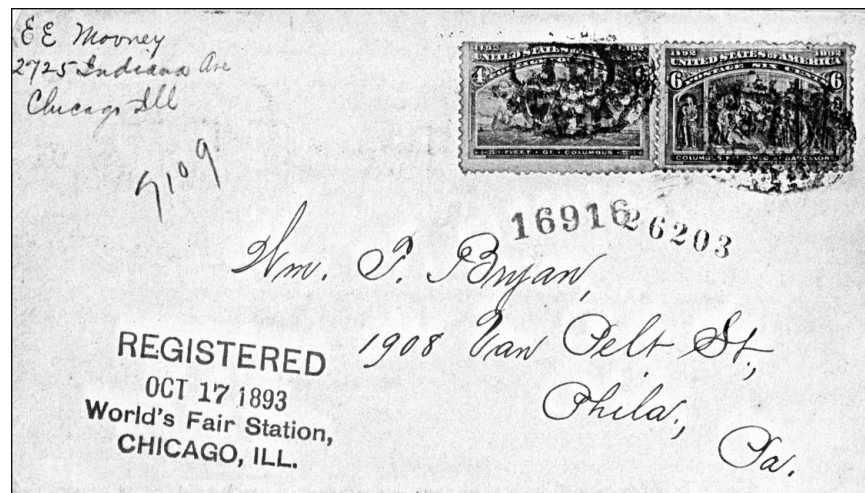 E E Mooney
2725 Indiana Ave
Chicago Ill
9109
1492
UNITED STATES OF AMERICA
4
FLEET OF COLUMBUS
1492 1892
UNITED STATES OF AMERICA
POSTAGE SIX CENTS
6 6
COLUMBUS WELCOMED AT BARCELONA
16916
26203
Wm. P. Bryan,
1908 Van Pelt St.,
Phila., Pa.
REGISTERED
OCT 17 1893
World's Fair Station,
CHICAGO, ILL.